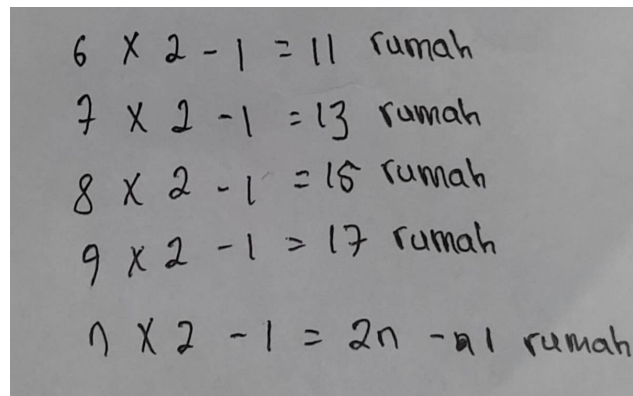 6 X 2 - 1 = 11 rumah
7 X 2 - 1 = 13 rumah
8 X 2 - 1 = 15 rumah
9 X 2 - 1 = 17 rumah
n X 2 - 1 = 2n - 1 rumah